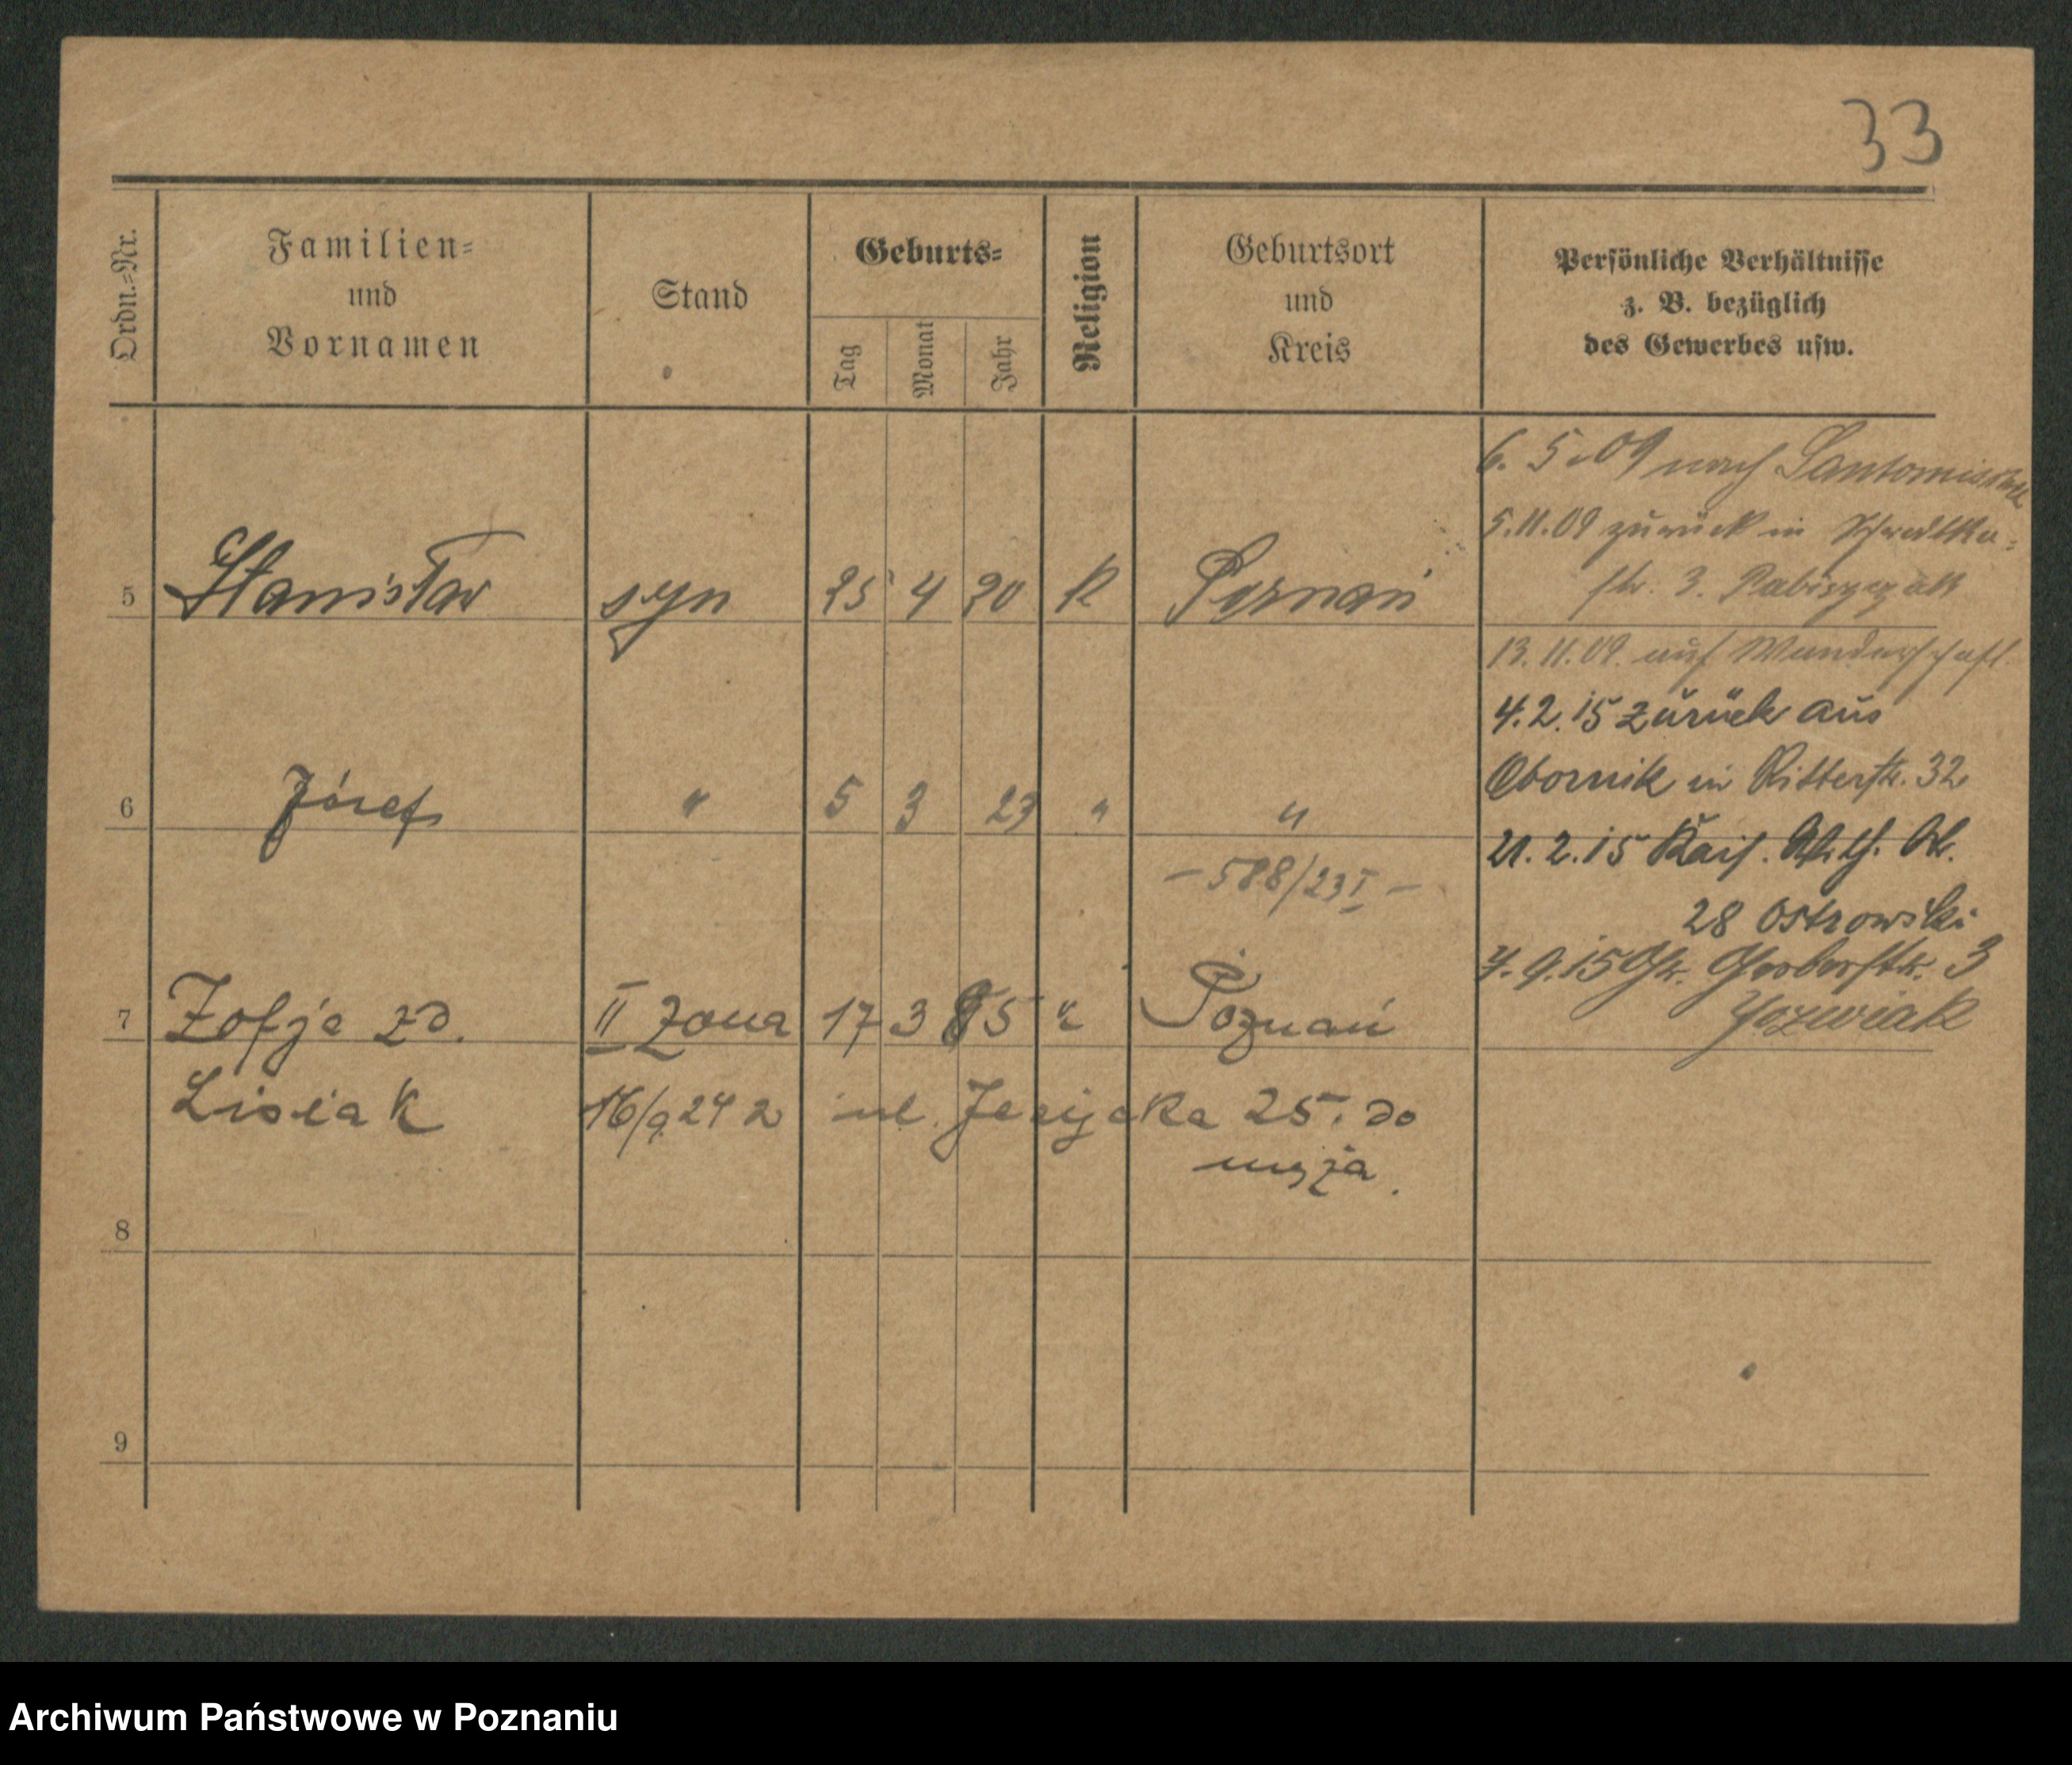 33
Ordn.-Nr.
Familien-
und
Vornamen
Stand
Geburts-
Tag
Monat
Jahr
Religion
Geburtsort
und
Kreis
Persönliche Verhältnisse
z. B. bezüglich
des Gewerbes usw.
6. 5. 09 nach
5.11.09 zurück in
5 Stanisław syn 25 4 20 K Poznań
str. 3.
13. 11. 09. auf Wanderschaft
4. 2. 15 zurück aus
Obornik in Ritterstr. 32
6 Józef " 5 3 23 " "
21. 2. 15 Kais.
– 588/23 I –
28 Ostrowski
7. 9. 15 Gr. Gerberstr. 3
7 Zofja zd. II żona 17 3 85 " Poznań
Jozwiak
Lisiak 16/9 24 z ul. Jeżycka 25. do
męża.
8
9
Archiwum Państwowe w Poznaniu